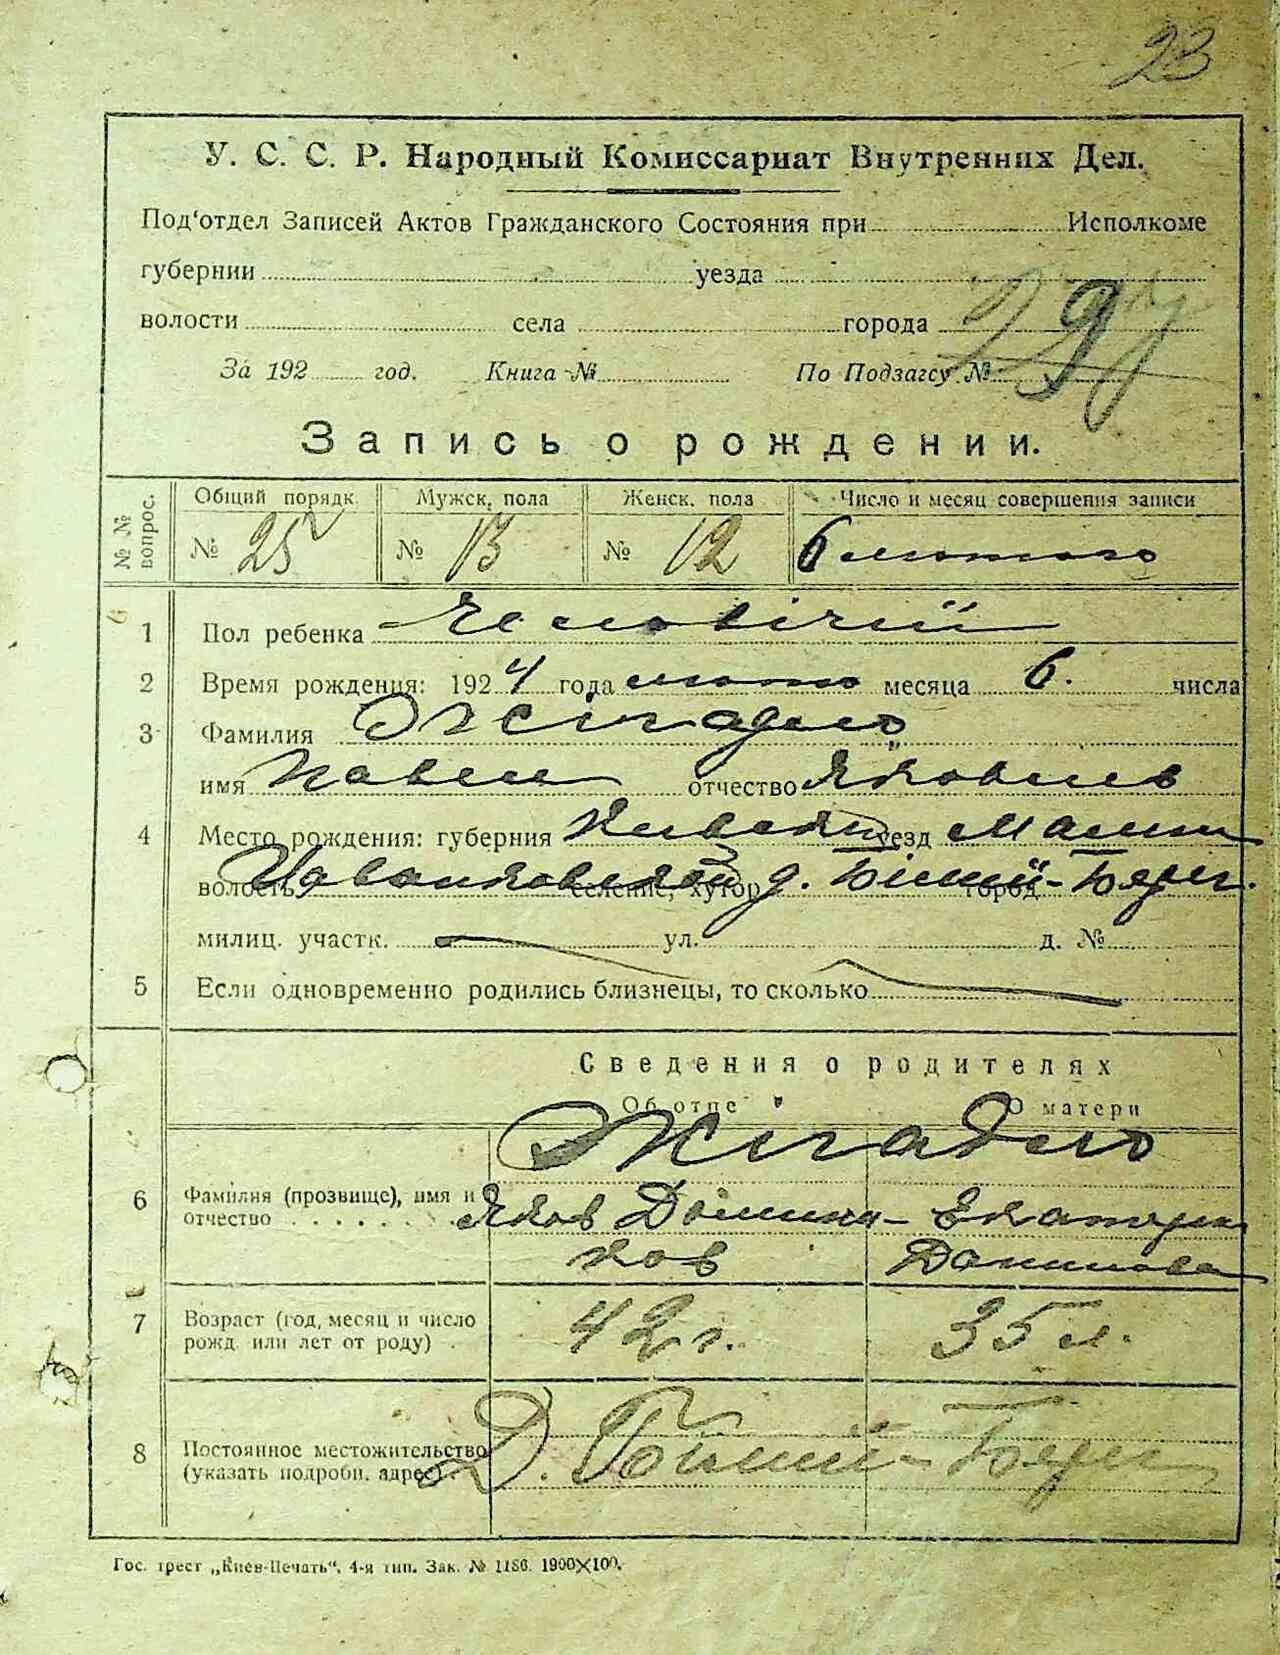 23
У. С. С. Р. Народный Комиссариат Внутренних Дел.
Под'отдел Записей Актов Гражданского Состояния при Исполкоме
губернии уезда
волости села города
За 192 год. Книга № По Подзагсу №
Запись о рождении.
№ № вопрос. Общий порядк. Мужск. пола Женск. пола Число и месяц совершения записи
№ 25 № 13 № 12 6 лютого
1 Пол ребенка Человічий
2 Время рождения: 1924 года лютого месяца 6. числа
3 Фамилия Жигадло
имя Павел отчество Яковлев
4 Место рождения: губерния уезд Малин
волость селение, хутор д. Білий-Берег. город
милиц. участк. ул. д. №
5 Если одновременно родились близнецы, то сколько
Сведения о родителях
Об отце О матери
Жигадло
6 Фамилия (прозвище), имя и Яков Домині- Екатерин
отчество ков Данилова
7 Возраст (год, месяц и число 42 г. 35 л.
рожд. или лет от роду)
8 Постоянное местожительство Д. Білий-Берег
(указать подробн. адрес)
Гос. трест „Киев-Печать“. 4-я тип. Зак. № 1186. 1900×100.